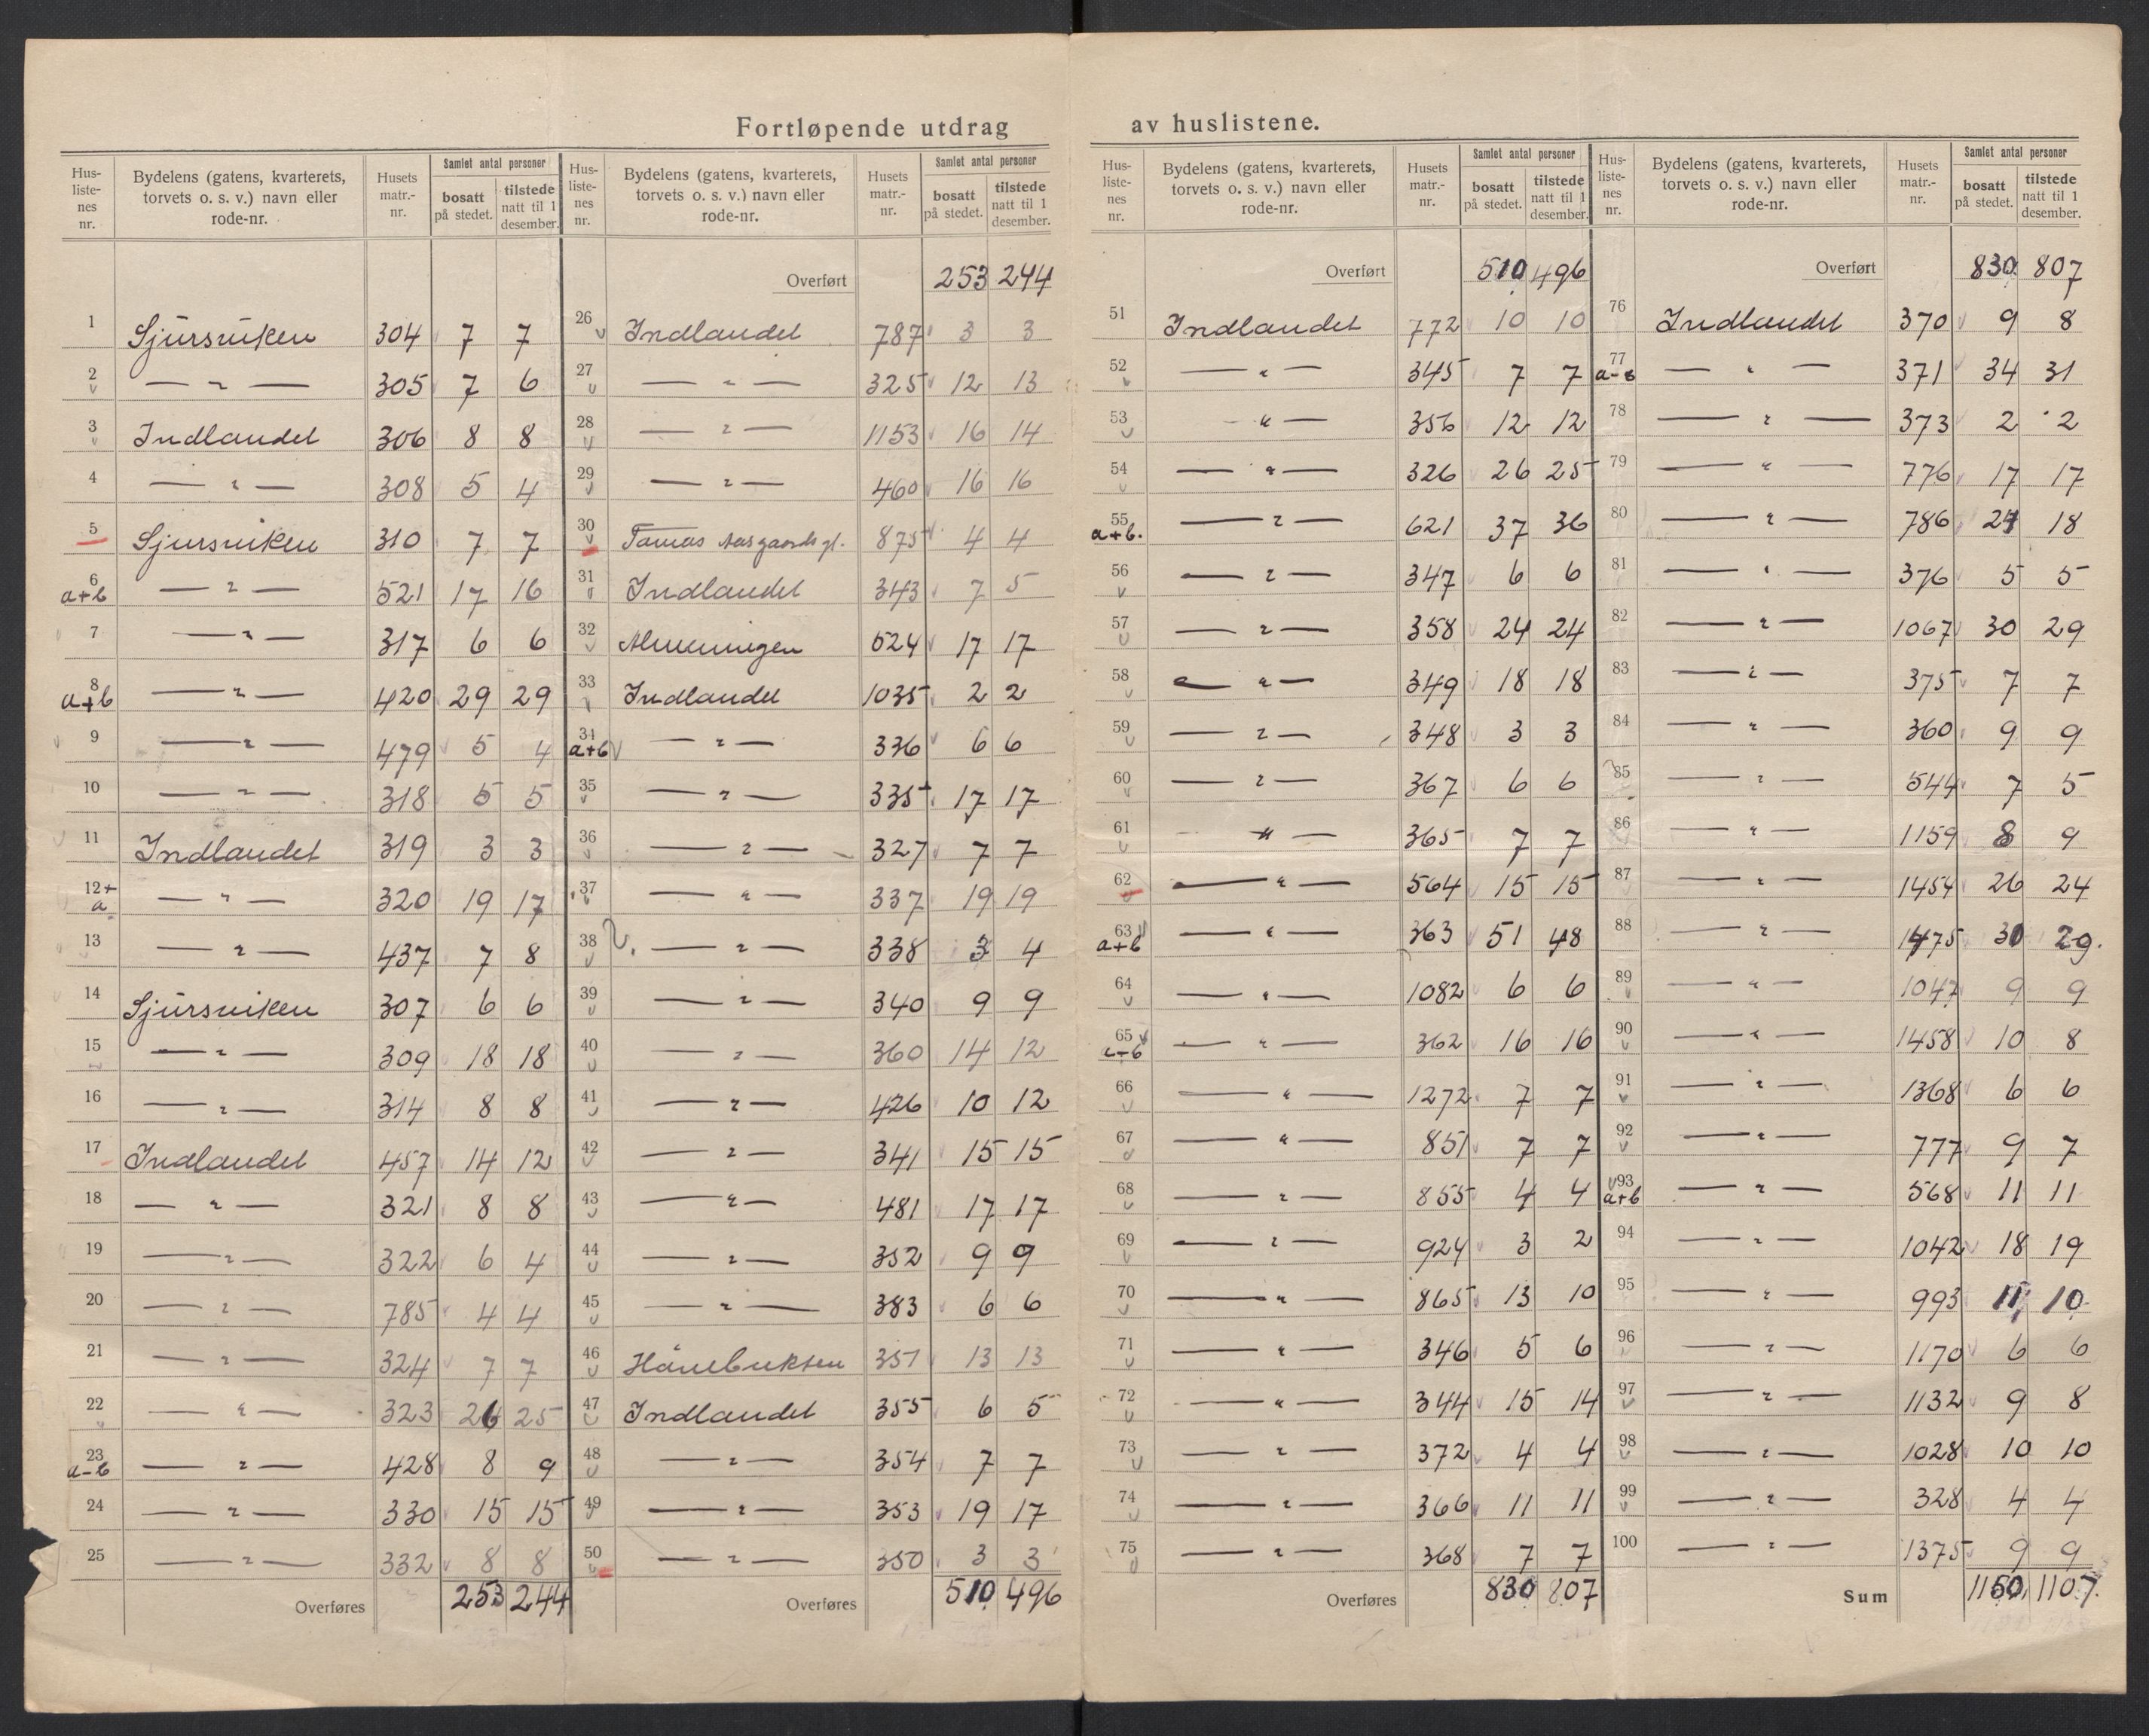 Fortløpende utdrag av huslistene.
Hus-liste-nes nr. | Bydelens (gatens, kvarterets, torvets o. s. v.) navn eller rode-nr. | Husets matr.-nr. | Samlet antal personer bosatt på stedet. | tilstede natt til 1 desember.
1 Sjursviken 304 7 7
2 — " — 305 7 6
3 Indlandet 306 8 8
4 — " — 308 5 4
5 Sjursviken 310 7 7
6 a+b — " — 521 17 16
7 — " — 317 6 6
8 a+b — " — 420 29 29
9 — " — 479 5 4
10 — " — 318 5 5
11 Indlandet 319 3 3
12+a — " — 320 19 17
13 — " — 437 7 8
14 Sjursviken 307 6 6
15 — " — 309 18 18
16 — " — 314 8 8
17 Indlandet 457 14 12
18 — " — 321 8 8
19 — " — 322 6 4
20 — " — 785 4 4
21 — " — 324 7 7
22 — " — 323 26 25
23 a-b — " — 428 8 9
24 — " — 330 15 15
25 — " — 332 8 8
Overføres 253 244
Hus-liste-nes nr. | Bydelens (gatens, kvarterets, torvets o. s. v.) navn eller rode-nr. | Husets matr.-nr. | Samlet antal personer bosatt på stedet. | tilstede natt til 1 desember.
Overført 253 244
26 Indlandet 787 3 3
27 — " — 325 12 13
28 — " — 1153 16 14
29 — " — 460 16 16
30 Aasgaards gt. 875 4 4
31 Indlandet 343 7 5
32 Almenningen 524 17 17
33 Indlandet 1035 2 2
34 a+b — " — 336 6 6
35 — " — 335 17 17
36 — " — 327 7 7
37 — " — 337 19 19
38 — " — 338 3 4
39 — " — 340 9 9
40 — " — 360 14 12
41 — " — 426 10 12
42 — " — 341 15 15
43 — " — 481 17 17
44 — " — 352 9 9
45 — " — 383 6 6
46 Hånebuksen 351 13 13
47 Indlandet 355 6 5
48 — " — 354 7 7
49 — " — 353 19 17
50 — " — 350 3 3
Overføres 510 496
Hus-liste-nes nr. | Bydelens (gatens, kvarterets, torvets o. s. v.) navn eller rode-nr. | Husets matr.-nr. | Samlet antal personer bosatt på stedet. | tilstede natt til 1 desember.
Overført 510 496
51 Indlandet 772 10 10
52 — " — 345 7 7
53 " — 356 12 12
54 — " — 326 26 25
55 a+b. — " — 621 37 36
56 — " — 347 6 6
57 — " — 358 24 24
58 — " — 349 18 18
59 — " — 348 3 3
60 — " — 367 6 6
61 — " — 365 7 7
62 — " — 564 15 15
63 a+b — " — 363 51 48
64 — " — 1082 6 6
65 a-b — " — 362 16 16
66 — " — 1272 7 7
67 — " — 851 7 7
68 — " — 855 4 4
69 — " — 924 3 2
70 — " — 865 13 10
71 — " — 346 5 6
72 — " — 344 15 14
73 — " — 372 4 4
74 — " — 366 11 11
75 — " — 368 7 7
Overføres 830 807
Hus-liste-nes nr. | Bydelens (gatens, kvarterets, torvets o. s. v.) navn eller rode-nr. | Husets matr.-nr. | Samlet antal personer bosatt på stedet. | tilstede natt til 1 desember.
Overført 830 807
76 Indlandet 370 9 8
77 a-b — " — 371 34 31
78 — " — 373 2 2
79 — " — 776 17 17
80 — " — 786 21 18
81 — " — 376 5 5
82 — " — 1067 30 29
83 — " — 375 7 7
84 — " — 360 9 9
85 — " — 544 7 5
86 — " — 1159 8 9
87 — " — 1454 26 24
88 — " — 1475 30 29.
89 — " — 1047 9 9
90 — " — 1458 10 8
91 — " — 1368 6 6
92 — " — 777 9 7
93 a+b — " — 568 11 11
94 — " — 1042 18 19
95 — " — 993 11 10
96 — " — 1170 6 6
97 — " — 1132 9 8
98 — " — 1028 10 10
99 — " — 328 4 4
100 — " — 1375 9 9
Sum 1150 1107.